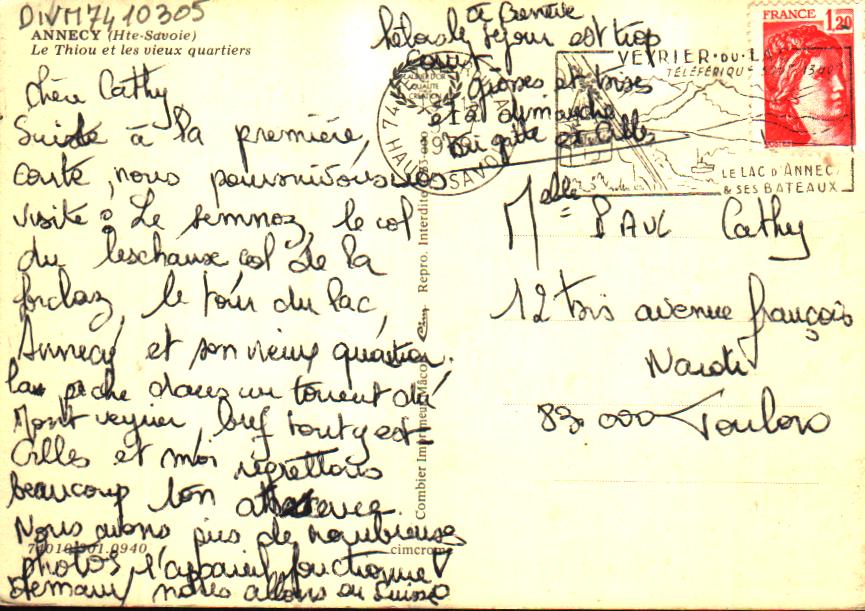 DIVM7410305
ANNECY (Hte-Savoie)
Le Thiou et les vieux quartiers
chère Cathy
Suite à la première,
carte, nous poursuivons nos
visite : Le semnoz, le col
du leschaux, col de la
forclaz, le tour du lac,
Annecy et son vieux quartier.
la pêche dans un torrent du
Mont veyrier, bref tout y est
Gilles et moi regrettons
beaucoup ton absence.
Nous avons pris de nombreuses
photos l'appareil fonctionne
demain nous allons en Suisse
à Genève
hélas le séjour est trop
court
Grosses et bises
et à dimanche
Brigitte et Gilles
74010.901.0940
cimcrome
Combier Imprimeur Mâcon Cim Repro. Interdite
FRANCE 1,20
VEYRIER-DU-LAC
TÉLÉFÉRIQUE
LE LAC D'ANNECY
& SES BATEAUX
HAUTE SAVOIE
Melle PAUL Cathy
12 bis avenue françois
Nardi
83 000 Toulon